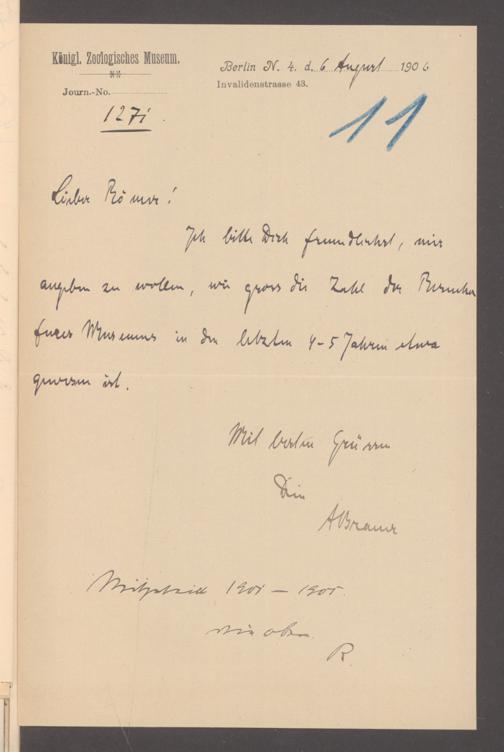 Königl. Zoologisches Museum.
Berlin N. 4. d. 6 August 1906
Invalidenstrasse 43.
Journ.-No.
127i
11
Lieber Römer!
Ich bitte Dich freundlichst, mir
angeben zu wollen, wie gross die Zahl der Besucher
Eures Museums in den letzten 4-5 Jahren etwa
gewesen ist.
Mit besten Grüssen
Dein
A Brauer
1901 – 1905.
R.